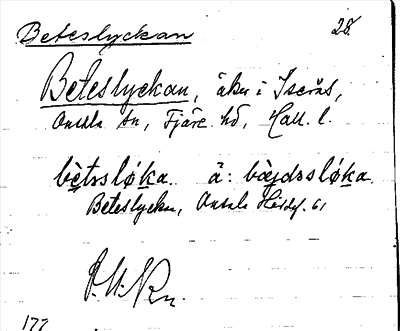 Beteslyckan 28.
Beteslyckan, åker i Iserås,
Onsala sn, Fjäre hd, Hall. l.
bètssløka. ä: bæjdssløka.
Beteslyckan, Onsala Hdsf. 61
177